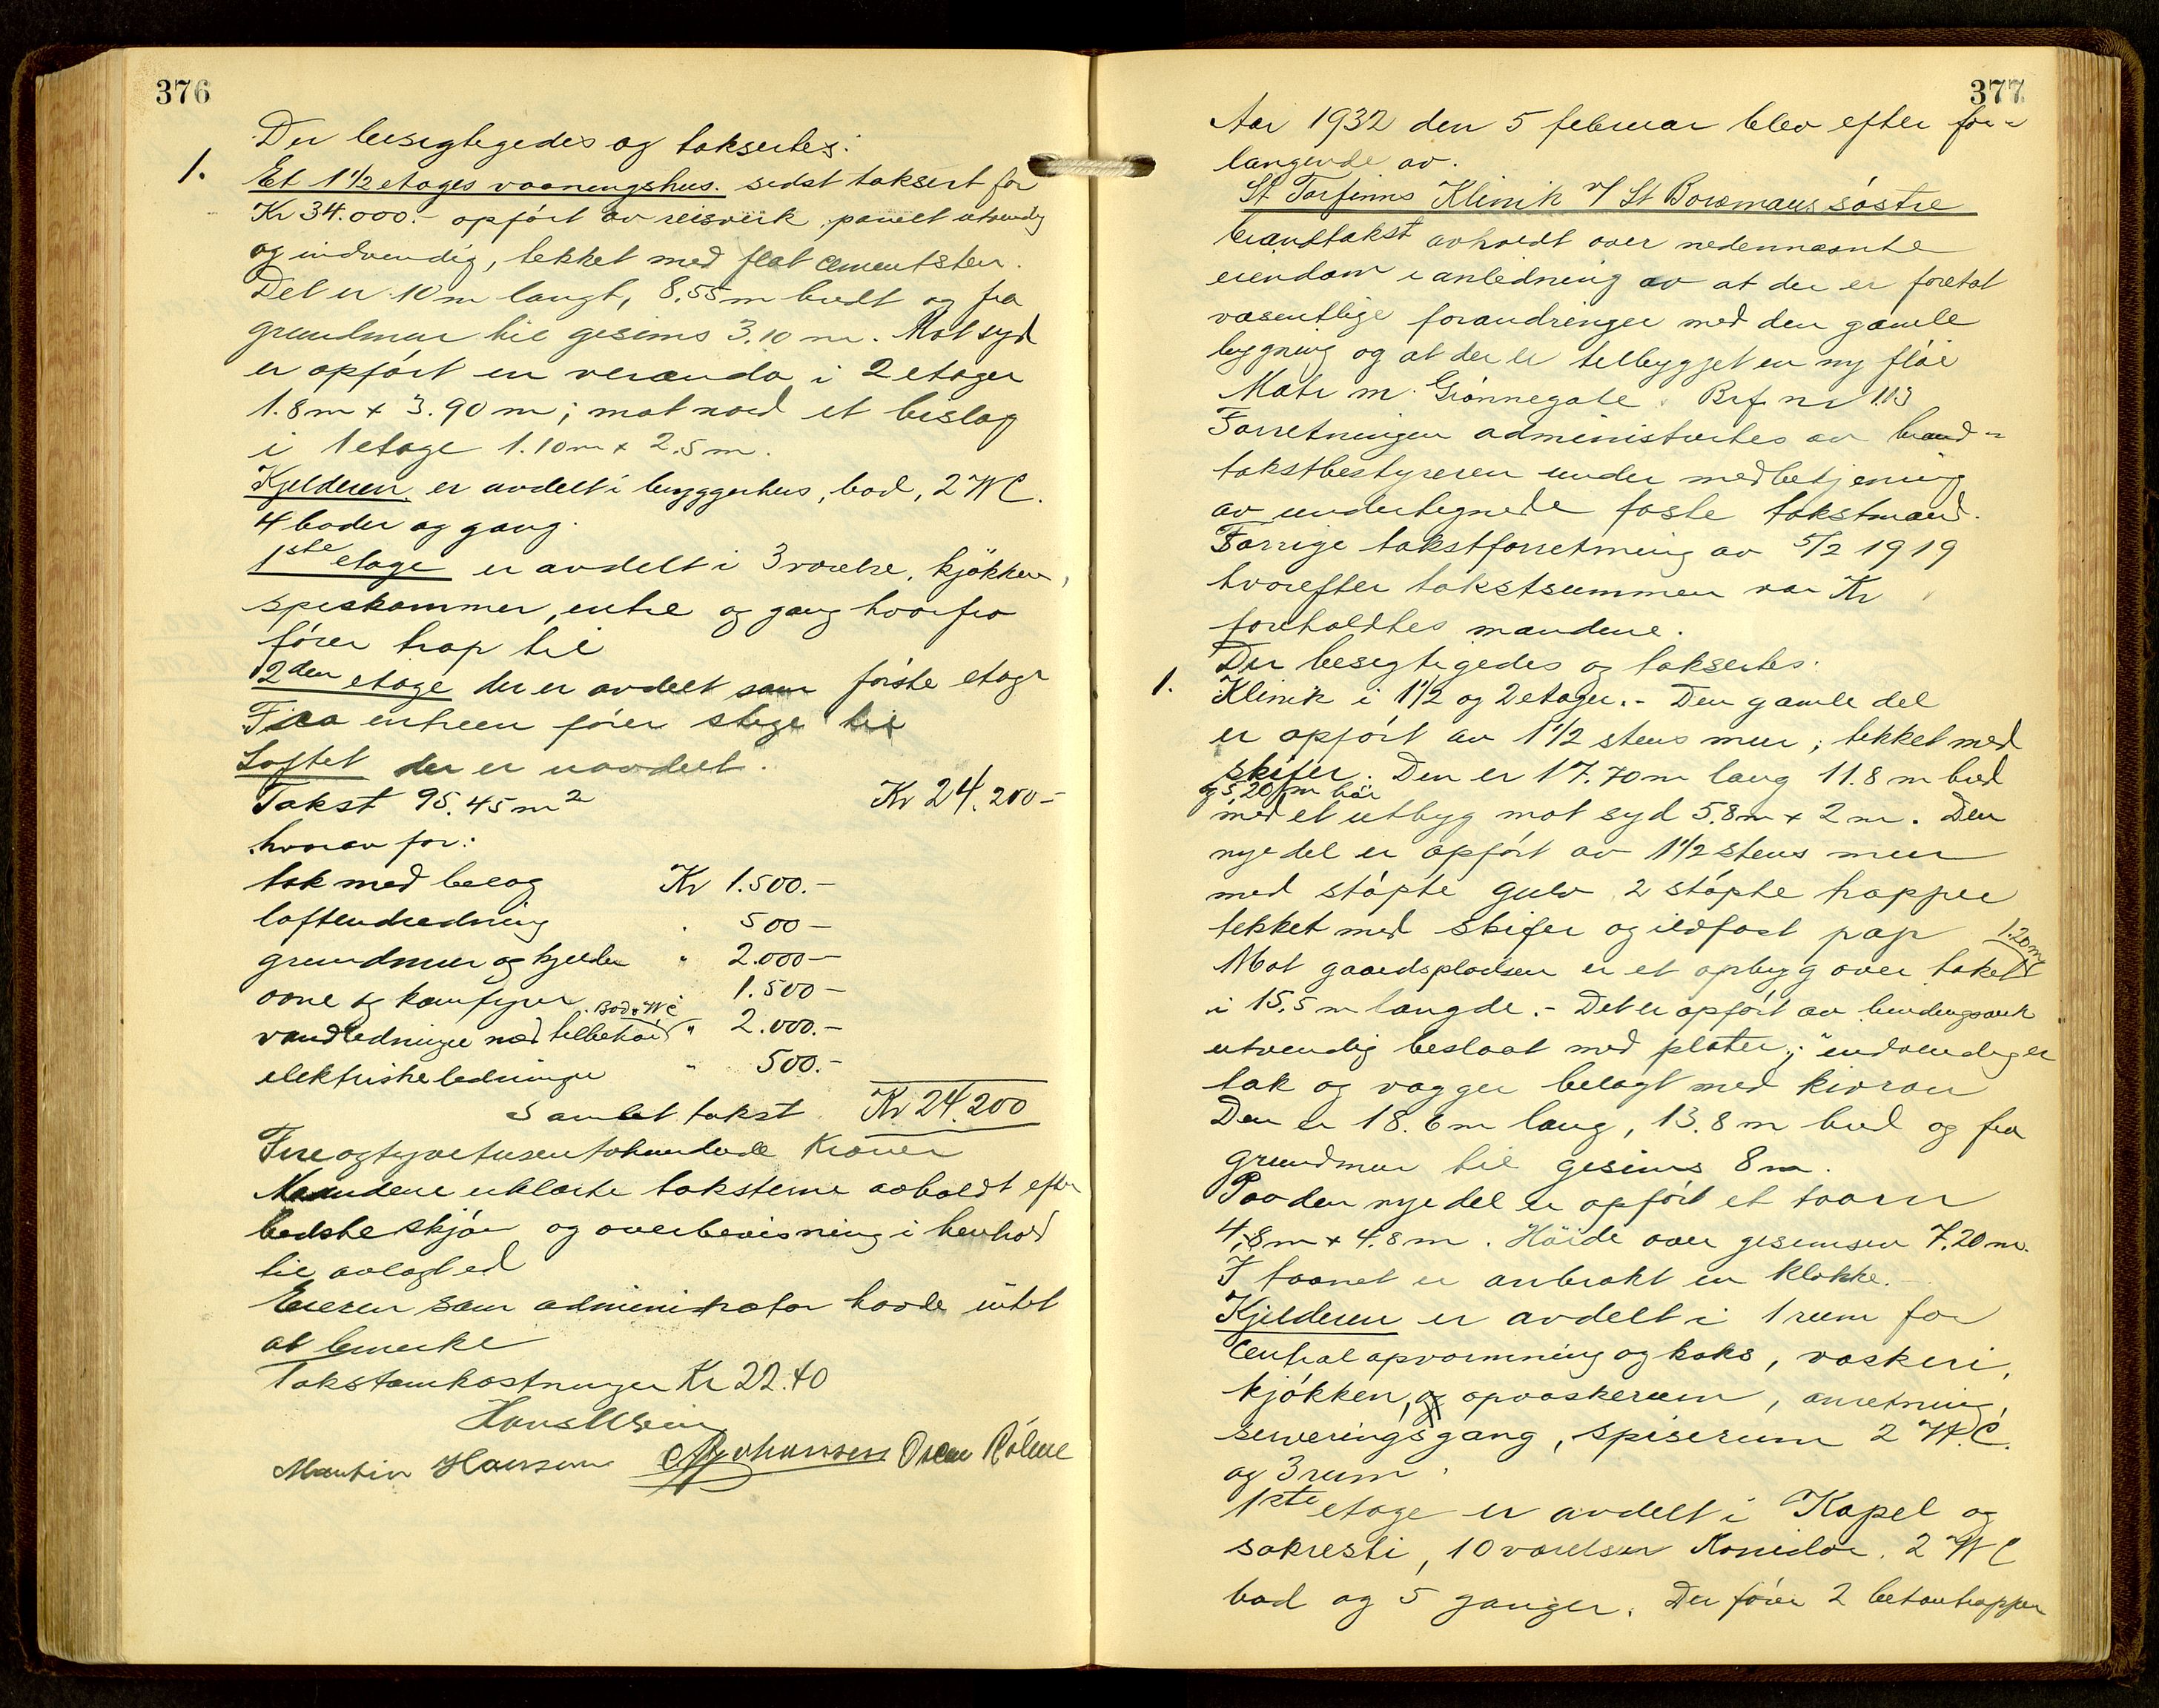 376
Der besigtigedes og taksertes:
1. Et 1 1/2 etages vaaningshus. sidst taksert for
Kr 34.000.- opført av reisverk, panelt utvendig
og indvendig, tekket med flat cementsten.
Det er 10 m langt, 8.55 m bredt og fra
grundmur til gesims 3.10 m. Mot syd
er opført en veranda i 2 etager
1.8 m x 3.90 m; mot nord et bislag
i 1 etage 1.10 m x 2.5 m.
Kjelderen er avdelt i bryggerhus, bad, 2 WC.
4 boder og gang.
1ste etage er avdelt i 3 værelse, kjøkken,
spiskammer, entre og gang hvorfra
fører trap til
2den etage der er avdelt som første etage
Fra entreen fører stige til
Loftet der er uavdelt.
Takst 95.45 m2 Kr 24.200-
hvorav for:
tak med belag Kr 1.500.-
loftindredning " 500-
grundmur og kjelder " 2.000-
ovne og komfyrer 1.500-
Bad & WC
vandledninger med tilbehør " 2.000.-
elektriske ledninger " 500.-
Samlet takst Kr 24.200
Fireogtyvetusentohundrede Kroner
Mændene erklærte taksterne avholdt efter
bedste skjøn og overbevisning i henhold
til avlagt ed
Eieren som administrator havde intet
at bemerke
Takstomkostninger Kr 22.40
Martin Hansen Johansen Oscar
377
Aar 1932 den 5 februar blev efter for-
langende av.
St Torfinns Klinik v/ St Boromæus søstre
brandtakst avholdt over nedennævnte
eiendom i anledning av at der er foretat
væsentlige forandringer med den gamle
bygning og at der er tilbygget en ny fløi
Matr nr. Grønnegate. Brf. nr 113
Forretningen administrertes av brand-
takstbestyreren under medbetjening
av undertegnede faste takstmænd.
Forrige takstforretning av 5/2 1919
hvorefter takstsummen var Kr
foreholdtes mændene.
Der besigtigedes og taksertes.
1. Klinik i 1 1/2 og 2 etager.- Den gamle del
er opført av 1 1/2 stens mur; tekket med
skifer. Den er 17.70 m lang 11.8 m bred
og 5.20 m høi
med et utbyg mot syd 5.8 m x 2 m. Den
nye del er opført av 1 1/2 stens mur
med støpte gulv 2 støpte trapper
tekket med skifer og ildfast pap
Mot gaardspladsen er et opbyg over taket 1.20 m
i 15.5 m længde.- Det er opført av bindingsverk
utvendig beslaat med plater; indvendig er
tak og vægger belagt med
Den er 18.6 m lang, 13.8 m bred og fra
grundmur til gesims 8 m.
Paa den nye del er opført et taarn
4.8 m x 4.8 m. Høide over gesimsen 7.20 m.
I taarnet er anbrakt en klokke.-
Kjelderen er avdelt i 1 rum for
Centralopvarmning og koks, vaskeri,
kjøkken, opvaskerum, anretning,
serveringsgang, spiserum 2 W.C.
og 3 rum.
1ste etage er avdelt i Kapel og
sakresti, 10 værelser Koridor. 2 WC
bad og 5 ganger. Der fører 2 betontrapper